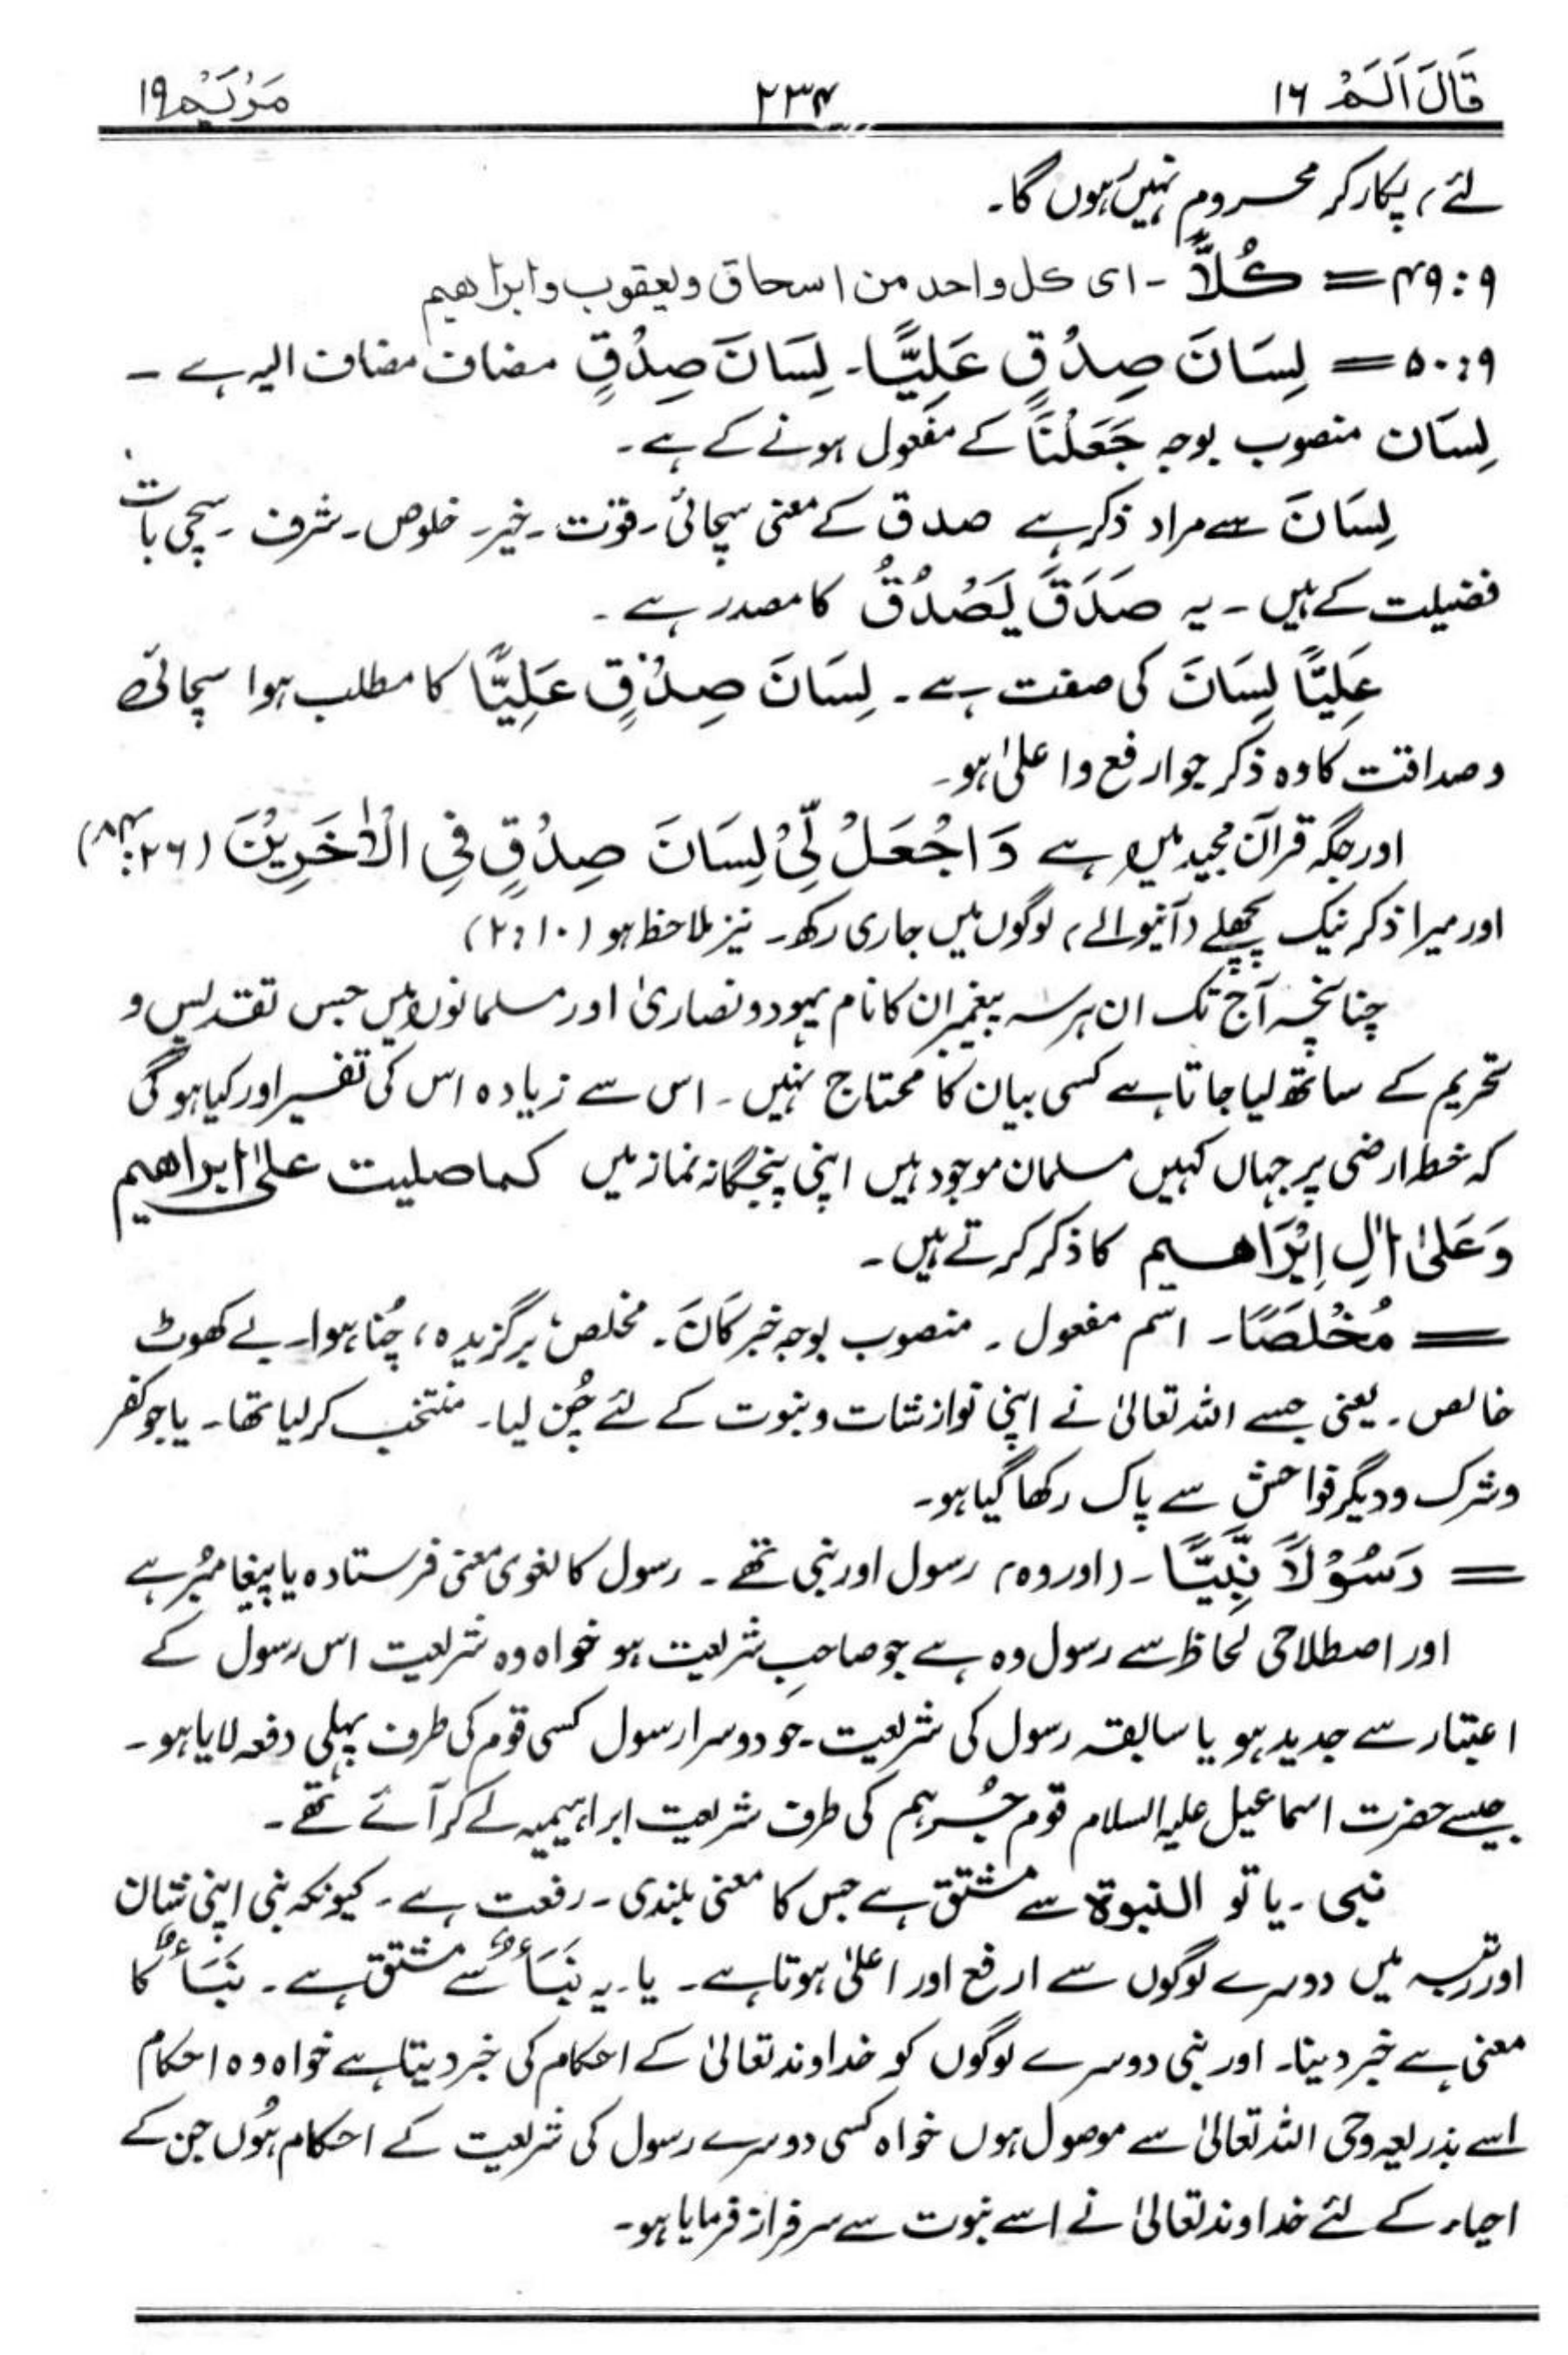 قَالَ اَلَمْ ۱۶ ۲۳۴ مَرْیَم ۱۹
لئے) پکار کر محروم نہیں ہوں گا۔
۴۹:۹ = کُلاًّ - ای کل واحد من اسحاق ویعقوب وابراھیم
۵۰:۹ = لِسَانَ صِدْقٍ عَلِیًّا۔ لِسَانَ صِدْقٍ مضاف مضاف الیہ ہے ۔
لِسَان منصوب بوجہ جَعَلْنَا کے مفعول ہونے کے ہے۔
لِسَانَ سے مراد ذکر ہے صدق کے معنی سچائی۔ قوّت۔ خیر۔ خلوص۔ شرف ۔ سچی بات
فضیلت کے ہیں ۔ یہ صَدَقَ یَصْدُقُ کا مصدر ہے ۔
عَلِیًّا لِسَانَ کی صفت ہے ۔ لِسَانَ صِدْقٍ عَلِیًّا کا مطلب ہوا سچائی
و صداقت کا وہ ذکر جو ارفع و اعلیٰ ہو۔
اور جگہ قرآن مجید میں ہے وَاجْعَلْ لِّیْ لِسَانَ صِدْقٍ فِی الْاٰخَرِیْنَ (۲۶:۸۴)
اور میرا ذکر نیک پچھلے (آنیوالے) لوگوں میں جاری رکھ۔ نیز ملاحظہ ہو (۲:۱۰)
چنانچہ آج تک ان ہر سہ پیغمبران کا نام یہود و نصاریٰ اور مسلمانوں میں جس تقدیس و
تحریم کے ساتھ لیا جاتا ہے کسی بیان کا محتاج نہیں ۔ اس سے زیادہ اس کی تفسیر اور کیا ہو گی
کہ خطہ ارضی پر جہاں کہیں مسلمان موجود ہیں اپنی پنجگانہ نماز میں کما صلیت علیٰ ابراھیم
وَعَلیٰ اٰلِ اِبْرَاھیم کا ذکر کرتے ہیں ۔
= مُخْلَصًا۔ اسم مفعول ۔ منصوب بوجہ خبر کَانَ۔ مخلص برگزیدہ، چُنا ہوا۔ بے کھوٹ
خالص ۔ یعنی جسے اللہ تعالیٰ نے اپنی نوازشات و نبوت کے لئے چُن لیا۔ منتخب کر لیا تھا۔ یا جو کفر
و شرک و دیگر فواحش سے پاک رکھا گیا ہو۔
= رَسُوْلاً نَّبِیًّا ۔ (اور وہ) رسول اور نبی تھے ۔ رسول کا لغوی معنی فرستادہ یا پیغامبر ہے
اور اصطلاحی لحاظ سے رسول وہ ہے جو صاحبِ شریعت ہو خواہ وہ شریعت اس رسول کے
اعتبار سے جدید ہو یا سابقہ رسول کی شریعت ۔ جو دوسرا رسول کسی قوم کی طرف پہلی دفعہ لایا ہو ۔
جیسے حضرت اسماعیل علیہ السلام قوم جُرہم کی طرف شریعت ابراہیمیہ لے کر آئے تھے ۔
نبی ۔ یا تو النبوۃ سے مشتق ہے جس کا معنی بلندی ۔ رفعت ہے ۔ کیونکہ نبی اپنی شان
اور رتبہ میں دوسرے لوگوں سے ارفع اور اعلیٰ ہوتا ہے ۔ یا یہ نَبَأٌ سے مشتق ہے ۔ نَبَأٌ کا
معنی ہے خبر دینا۔ اور نبی دوسرے لوگوں کو خداوند تعالیٰ کے احکام کی خبر دیتا ہے خواہ وہ احکام
اسے بذریعہ وحی اللہ تعالیٰ سے موصول ہوں خواہ کسی دوسرے رسول کی شریعت کے احکام ہُوں جن کے
احیاء کے لئے خداوند تعالیٰ نے اسے نبوت سے سرفراز فرمایا ہو۔